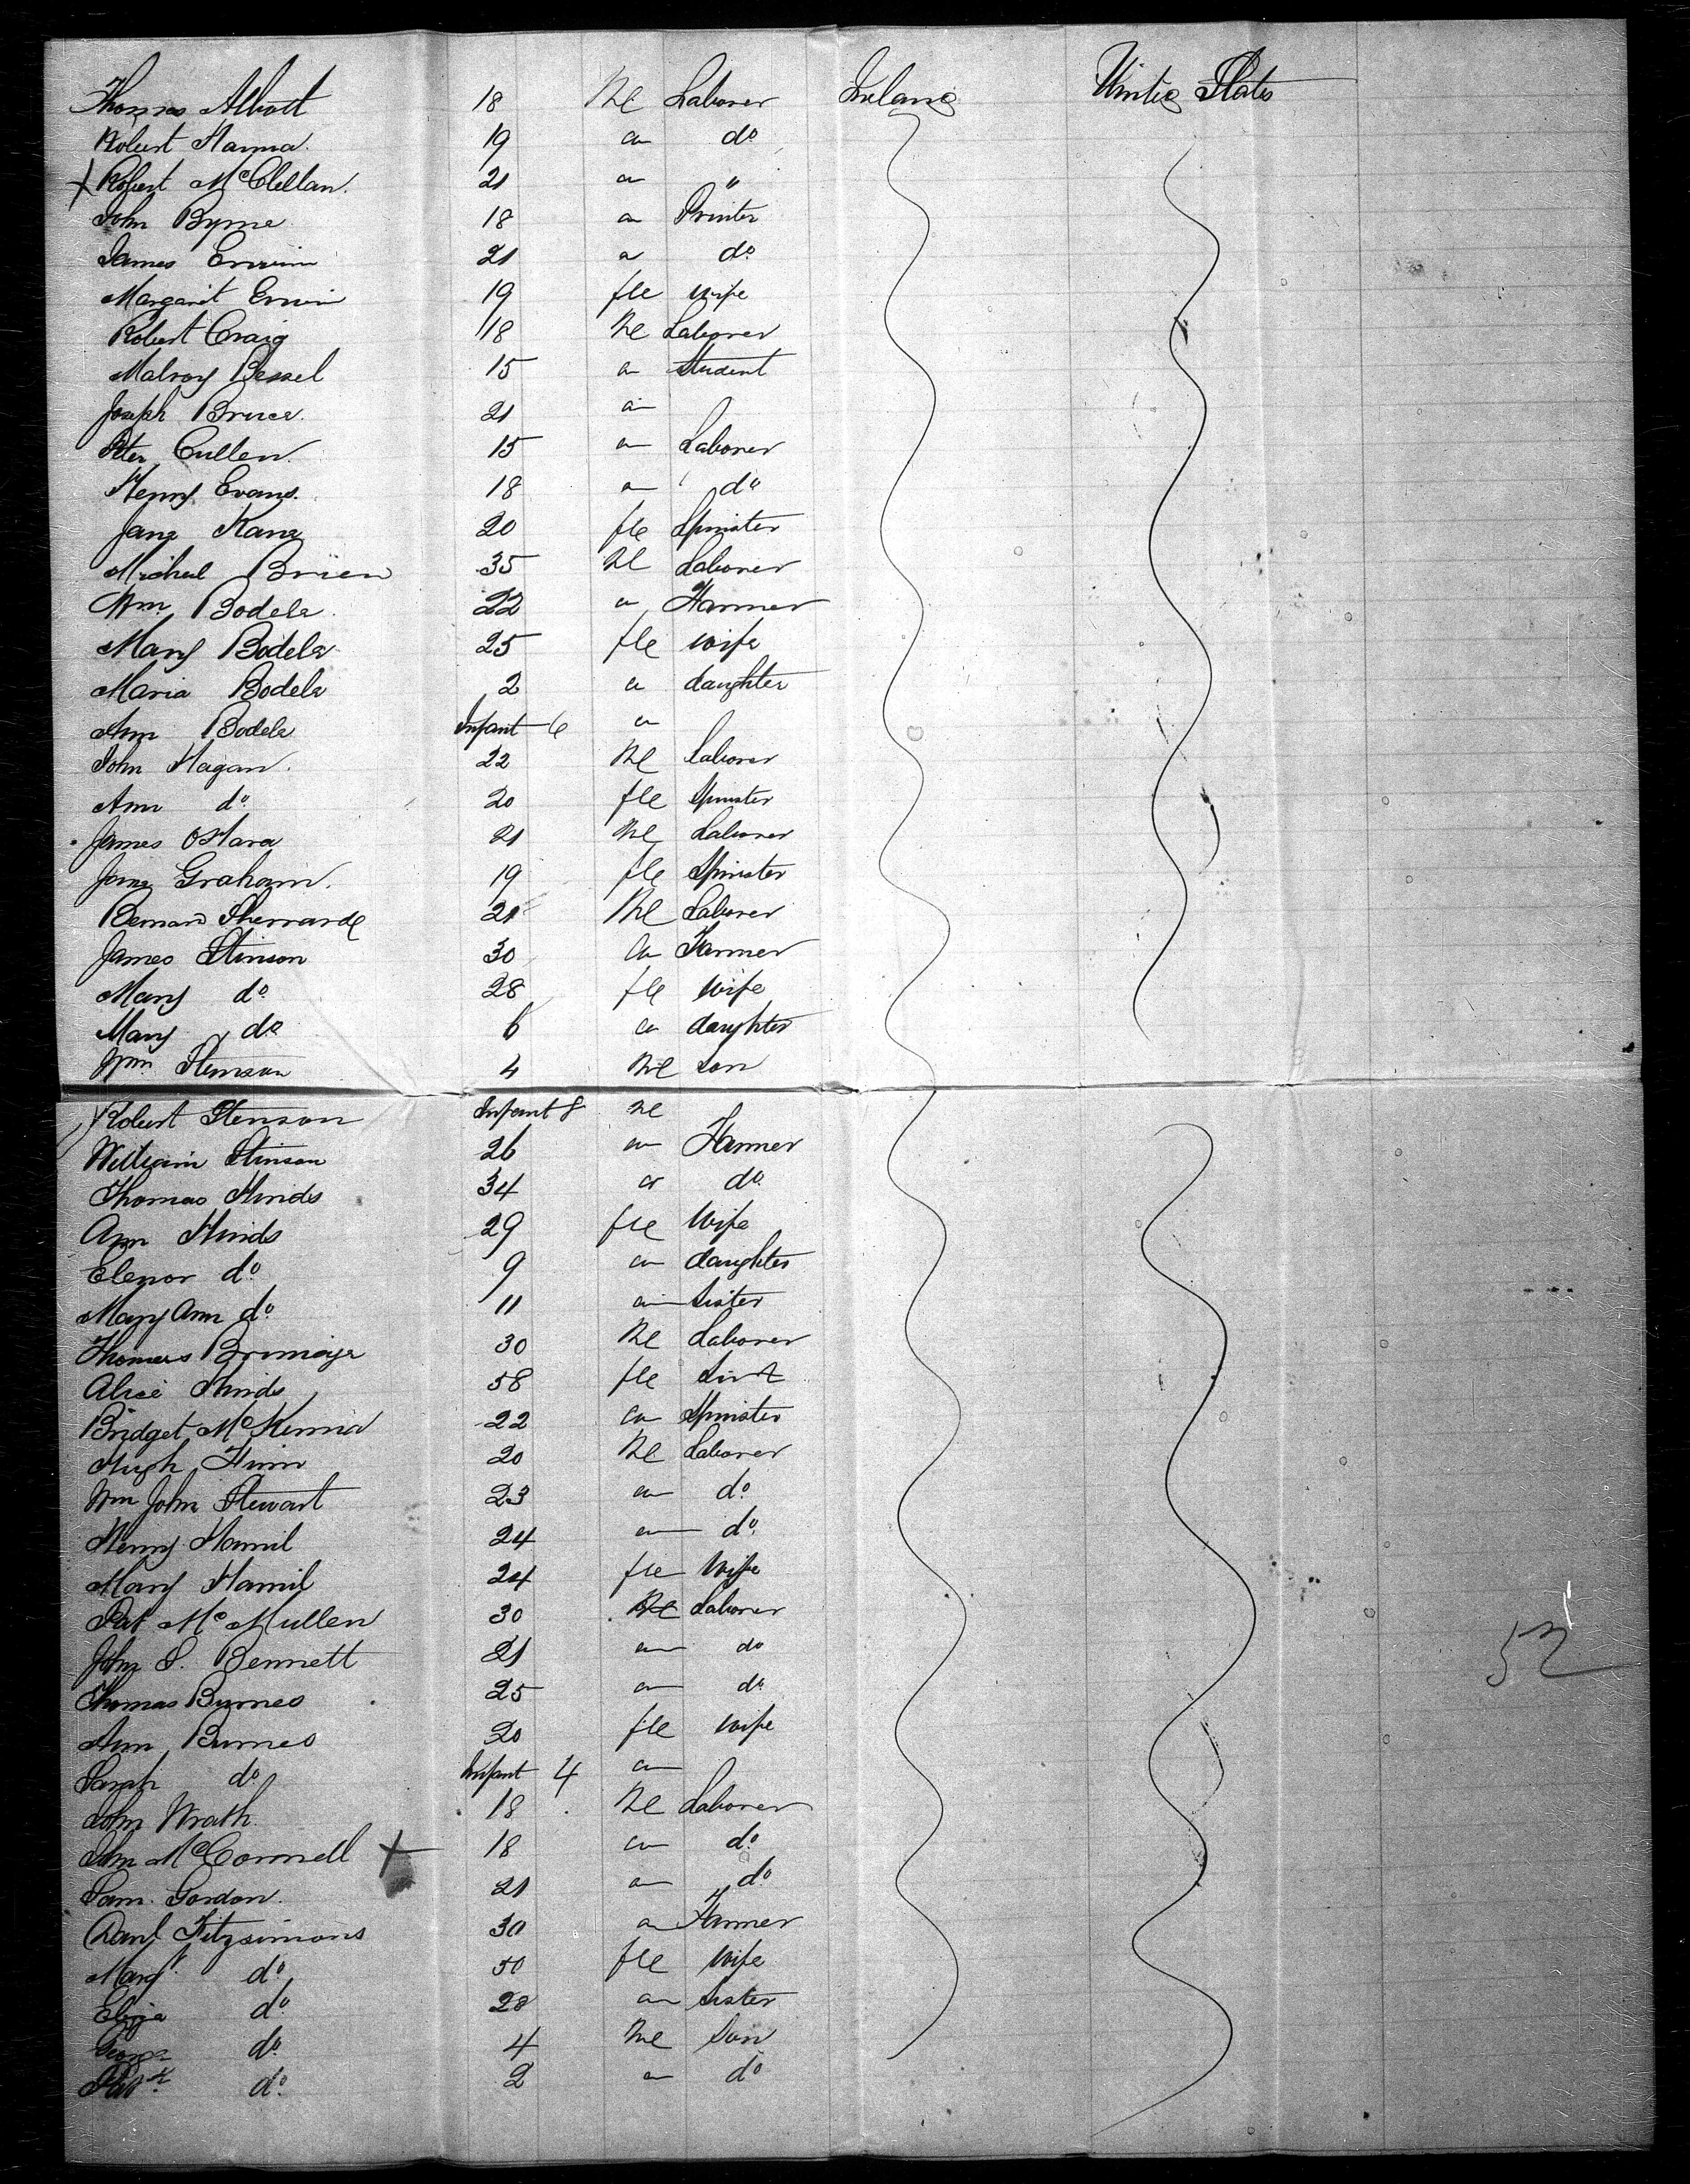 Thomas Abbott 18 Me Laborer Ireland United States
Robert Hanna 19 " do
X Robert McClellan 21 " "
John Byrne 18 " Printer
James Erwin 21 " do
Margaret Erwin 19 fle wife
Robert Craig 18 Me Laborer
Malroy Bessel 15 " Student
Joseph Bruce 21 "
Peter Cullen 15 " Laborer
Henry Evans 18 " do
Jane Kane 20 fle Spinster
Micheal Brien 35 Me Laborer
Wm Bodele 22 " Farmer
Mary Bodele 25 fle wife
Maria Bodele 2 " daughter
Ann Bodele Infant 6 "
John Hagan 22 Me Laborer
Ann do 20 fle Spinster
James OHara 21 Me Laborer
Jane Graham 19 fle Spinster
Bernard Sherrard 21 Me Laborer
James Stinson 30 " Farmer
Mary do 28 fle wife
Mary do 6 " daughter
Wm Stenson 4 Me son
Robert Stenson Infant 8 Me
William Stinson 26 " Farmer
Thomas Hinds 34 " do
Ann Hinds 29 fle Wife
Elenor do 9 " daughter
Mary Ann do 11 " Sister
Thomas 30 Me Laborer
Alice Hinds 58 fle
Bridget McKenna 22 " Spinster
Hugh Finn 20 Me Laborer
Wm John Stewart 23 " do
Henry Hamil 24 " do
Mary Hamil 24 fle Wife
Pat McMullen 30 Me Laborer
John S. Bennett 21 " do
Thomas Burnes 25 " do
Ann Burnes 20 fle wife
Sarah do Infant 4 "
John Wrath 18 Me Laborer
John McConnell X 18 " do
Sam. Gordon 21 " do
Danl Fitzsimons 30 " Farmer
Margt do 30 fle wife
Eliza do 28 " Sister
George do 4 Me Son
Patk do 2 " do
52